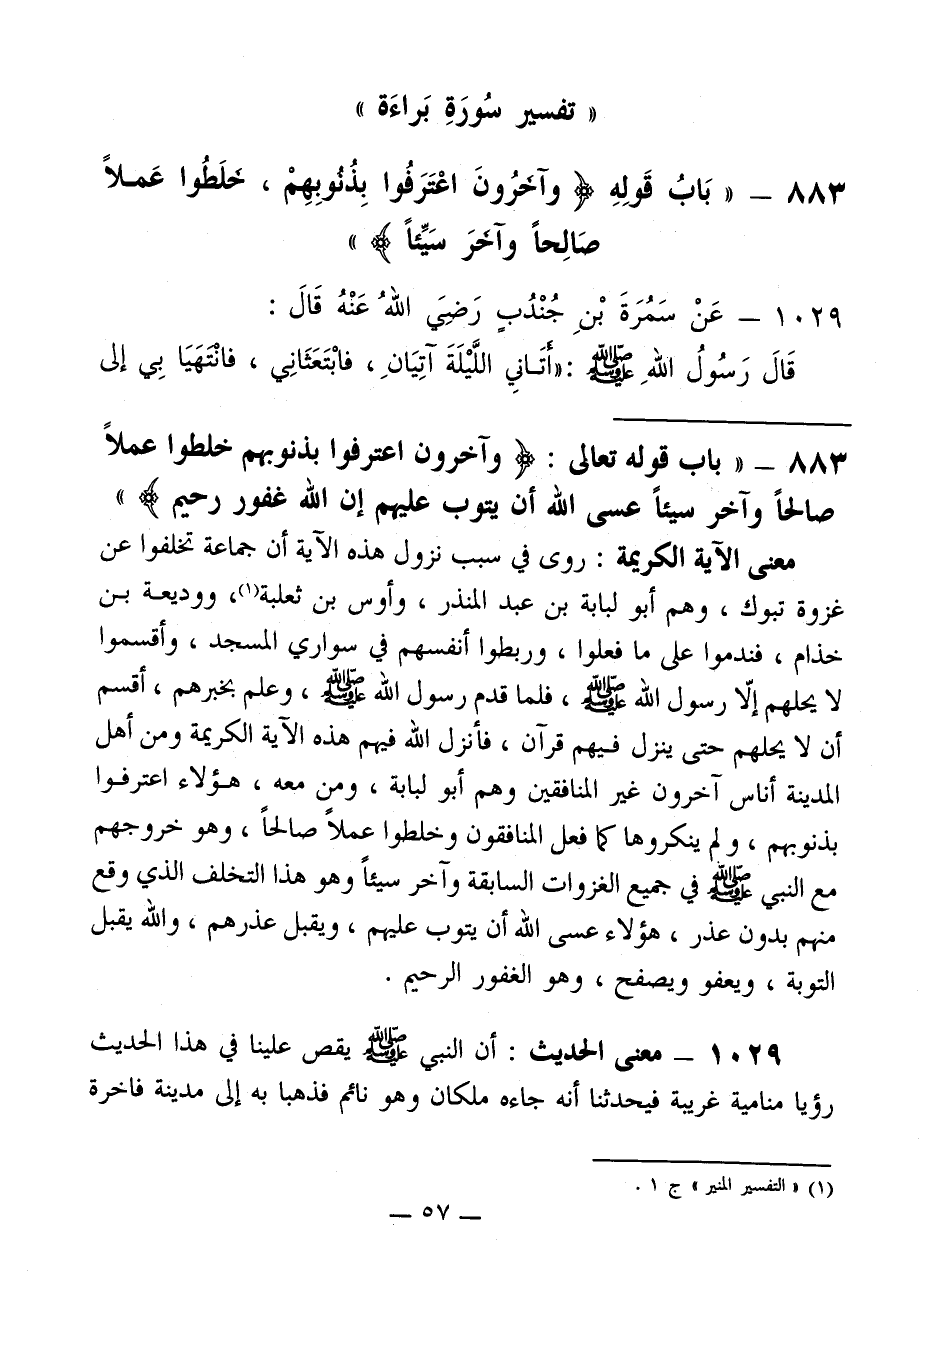 « تفسير سُورَةِ بَراءَة »
٨٨٣ – « بَابُ قَولِهِ ﴿ وآخَرُونَ اعْتَرَفُوا بِذُنُوبِهِمْ ، خَلَطُوا عَمـلاً
صَالِحاً وآخَرَ سَيِّئاً ﴾ »
١٠٢٩ – عَنْ سَمُرَةَ بْنِ جُنْدُبٍ رَضِيَ اللهُ عَنْهُ قَالَ :
قَالَ رَسُولُ اللهِ ﷺ :«أَتَـاني اللَّيْلَةَ آتِيَانِ ، فابْتَعَثَانِي ، فانْتَهَيَا بِي إلى
٨٨٣ – « باب قوله تعالى : ﴿ وآخرون اعترفوا بذنوبهم خلطوا عملاً
صالحاً وآخر سيئاً عسى الله أن يتوب عليهم إن الله غفور رحيم ﴾ »
معنى الآية الكريمة : روى في سبب نزول هذه الآية أن جماعة تخلفوا عن
غزوة تبوك ، وهم أبو لبابة بن عبد المنذر ، وأوس بن ثعلبة(١)، ووديعـة بـن
خذام ، فندموا على ما فعلوا ، وربطوا أنفسهم في سواري المسجد ، وأقسموا
لا يحلهم إلّا رسول الله ﷺ ، فلما قدم رسول الله ﷺ ، وعلم بخبرهم ، أقسم
أن لا يحلهم حتى ينزل فـيهم قرآن ، فأنزل الله فيهم هذه الآية الكريمة ومن أهل
المدينة أناس آخرون غير المنافقين وهم أبو لبابة ، ومن معه ، هـؤلاء اعترفـوا
بذنوبهم ، و لم ينكروها كما فعل المنافقون وخلطوا عملاً صالحاً ، وهو خروجهم
مع النبي ﷺ في جميع الغزوات السابقة وآخر سيئاً وهو هذا التخلف الذي وقع
منهم بدون عذر ، هؤلاء عسى الله أن يتوب عليهم ، ويقبل عذرهم ، والله يقبل
التوبة ، ويعفو ويصفح ، وهو الغفور الرحيم .
١٠٢٩ – معنى الحديث : أن النبي ﷺ يقص علينا في هذا الحديث
رؤيا منامية غريبة فيحدثنا أنه جاءه ملكان وهو نائم فذهبا به إلى مدينة فاخرة
(١) « التفسير المنير » ج ١ .
– ٥٧ –